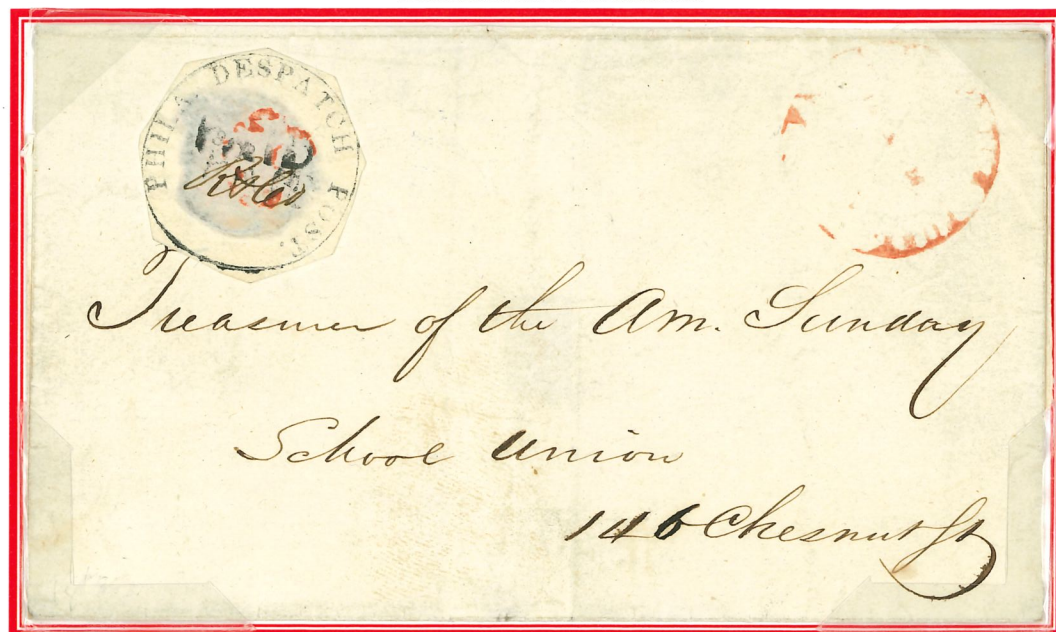 PHILA. DESPATCH POST.
Treasurer of the Am. Sunday
School Union
146 Chesnut St